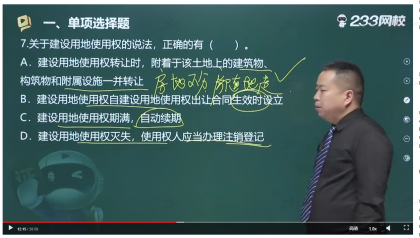 一、单项选择题
233网校
7.关于建设用地使用权的说法，正确的有（ ）。
A．建设用地使用权转让时，附着于该土地上的建筑物、
构筑物和附属设施一并转让
B．建设用地使用权自建设用地使用权出让合同生效时设立
C．建设用地使用权期满，自动续期
D．建设用地使用权灭失，使用权人应当办理注销登记
1.0x